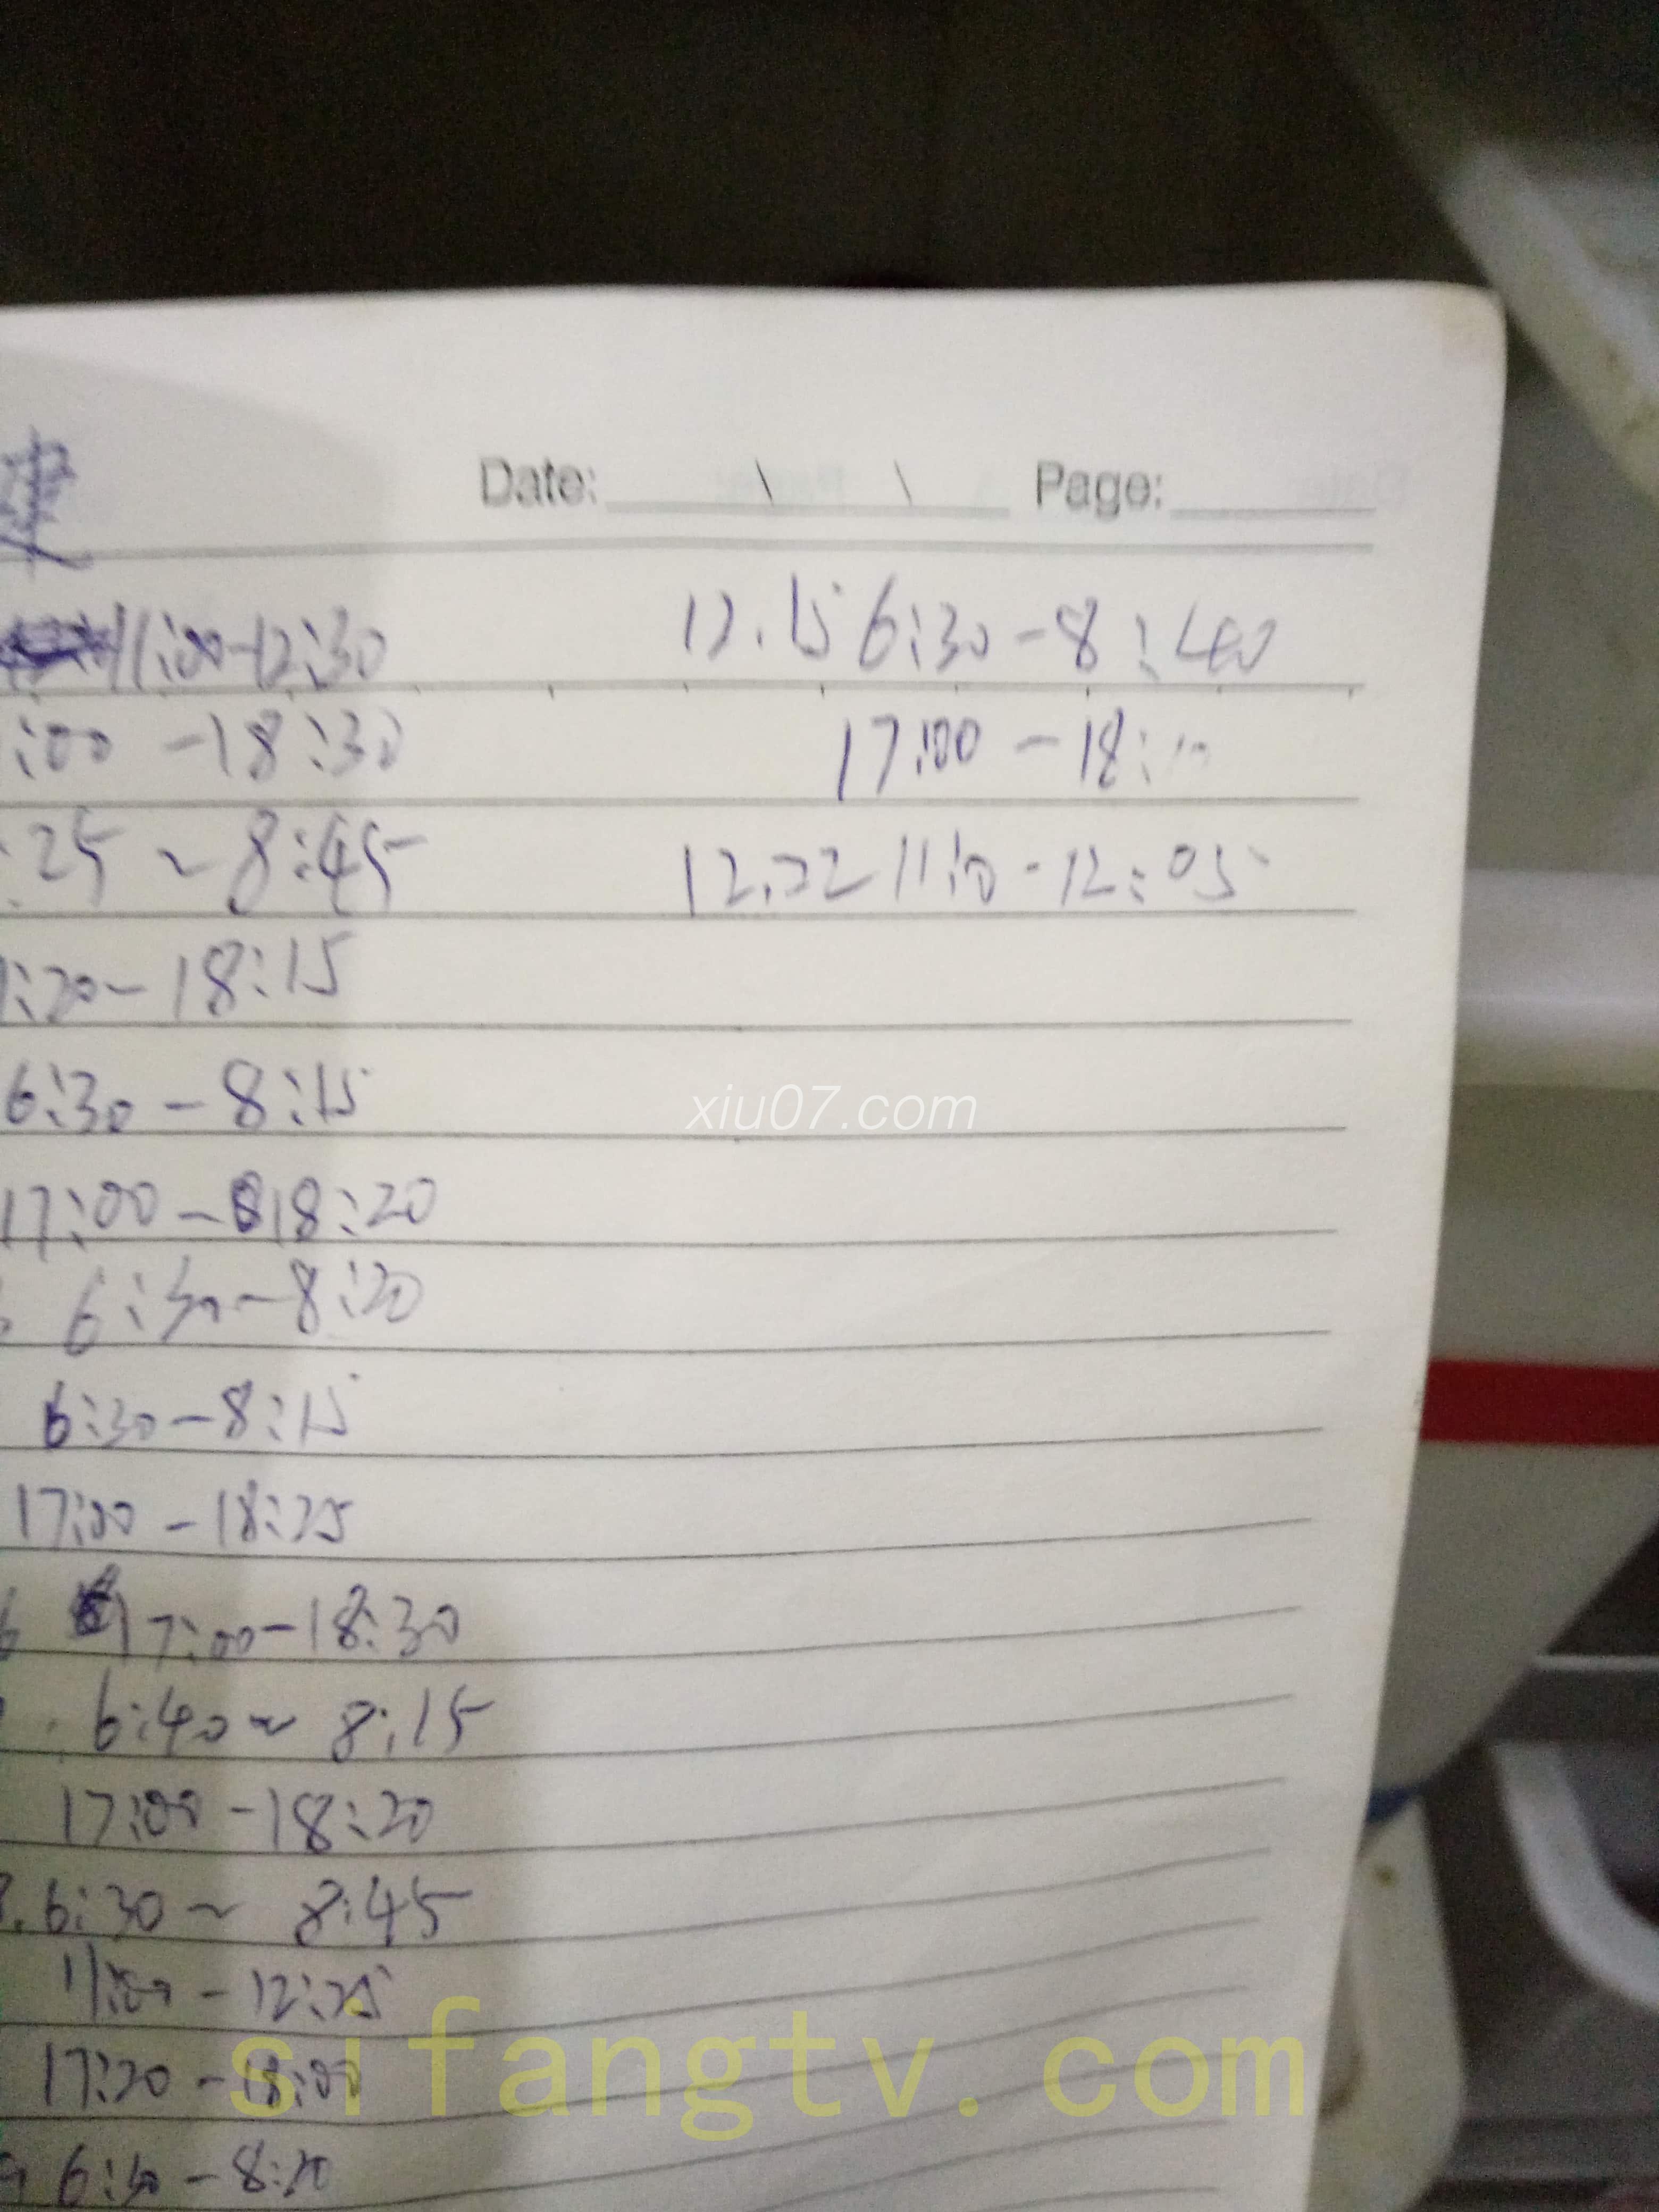 建
Date: Page:
11:00-12:30
:00 -18:30
:25 ~ 8:45
:20- 18:15
6:30 - 8:15
17:00 - 18:20
6:30-8:20
6:30-8:15
17:00 - 18:25
17:00-18:30
6:40~ 8:15
17:00 -18:20
6:30 ~ 8:45
11:00 - 12:25
17:20 - 18:00
6:30 - 8:20
12.15 6:30 - 8:40
17:00 - 18:
12.22 11:10 - 12:05
xiu07.com
sifangtv.com